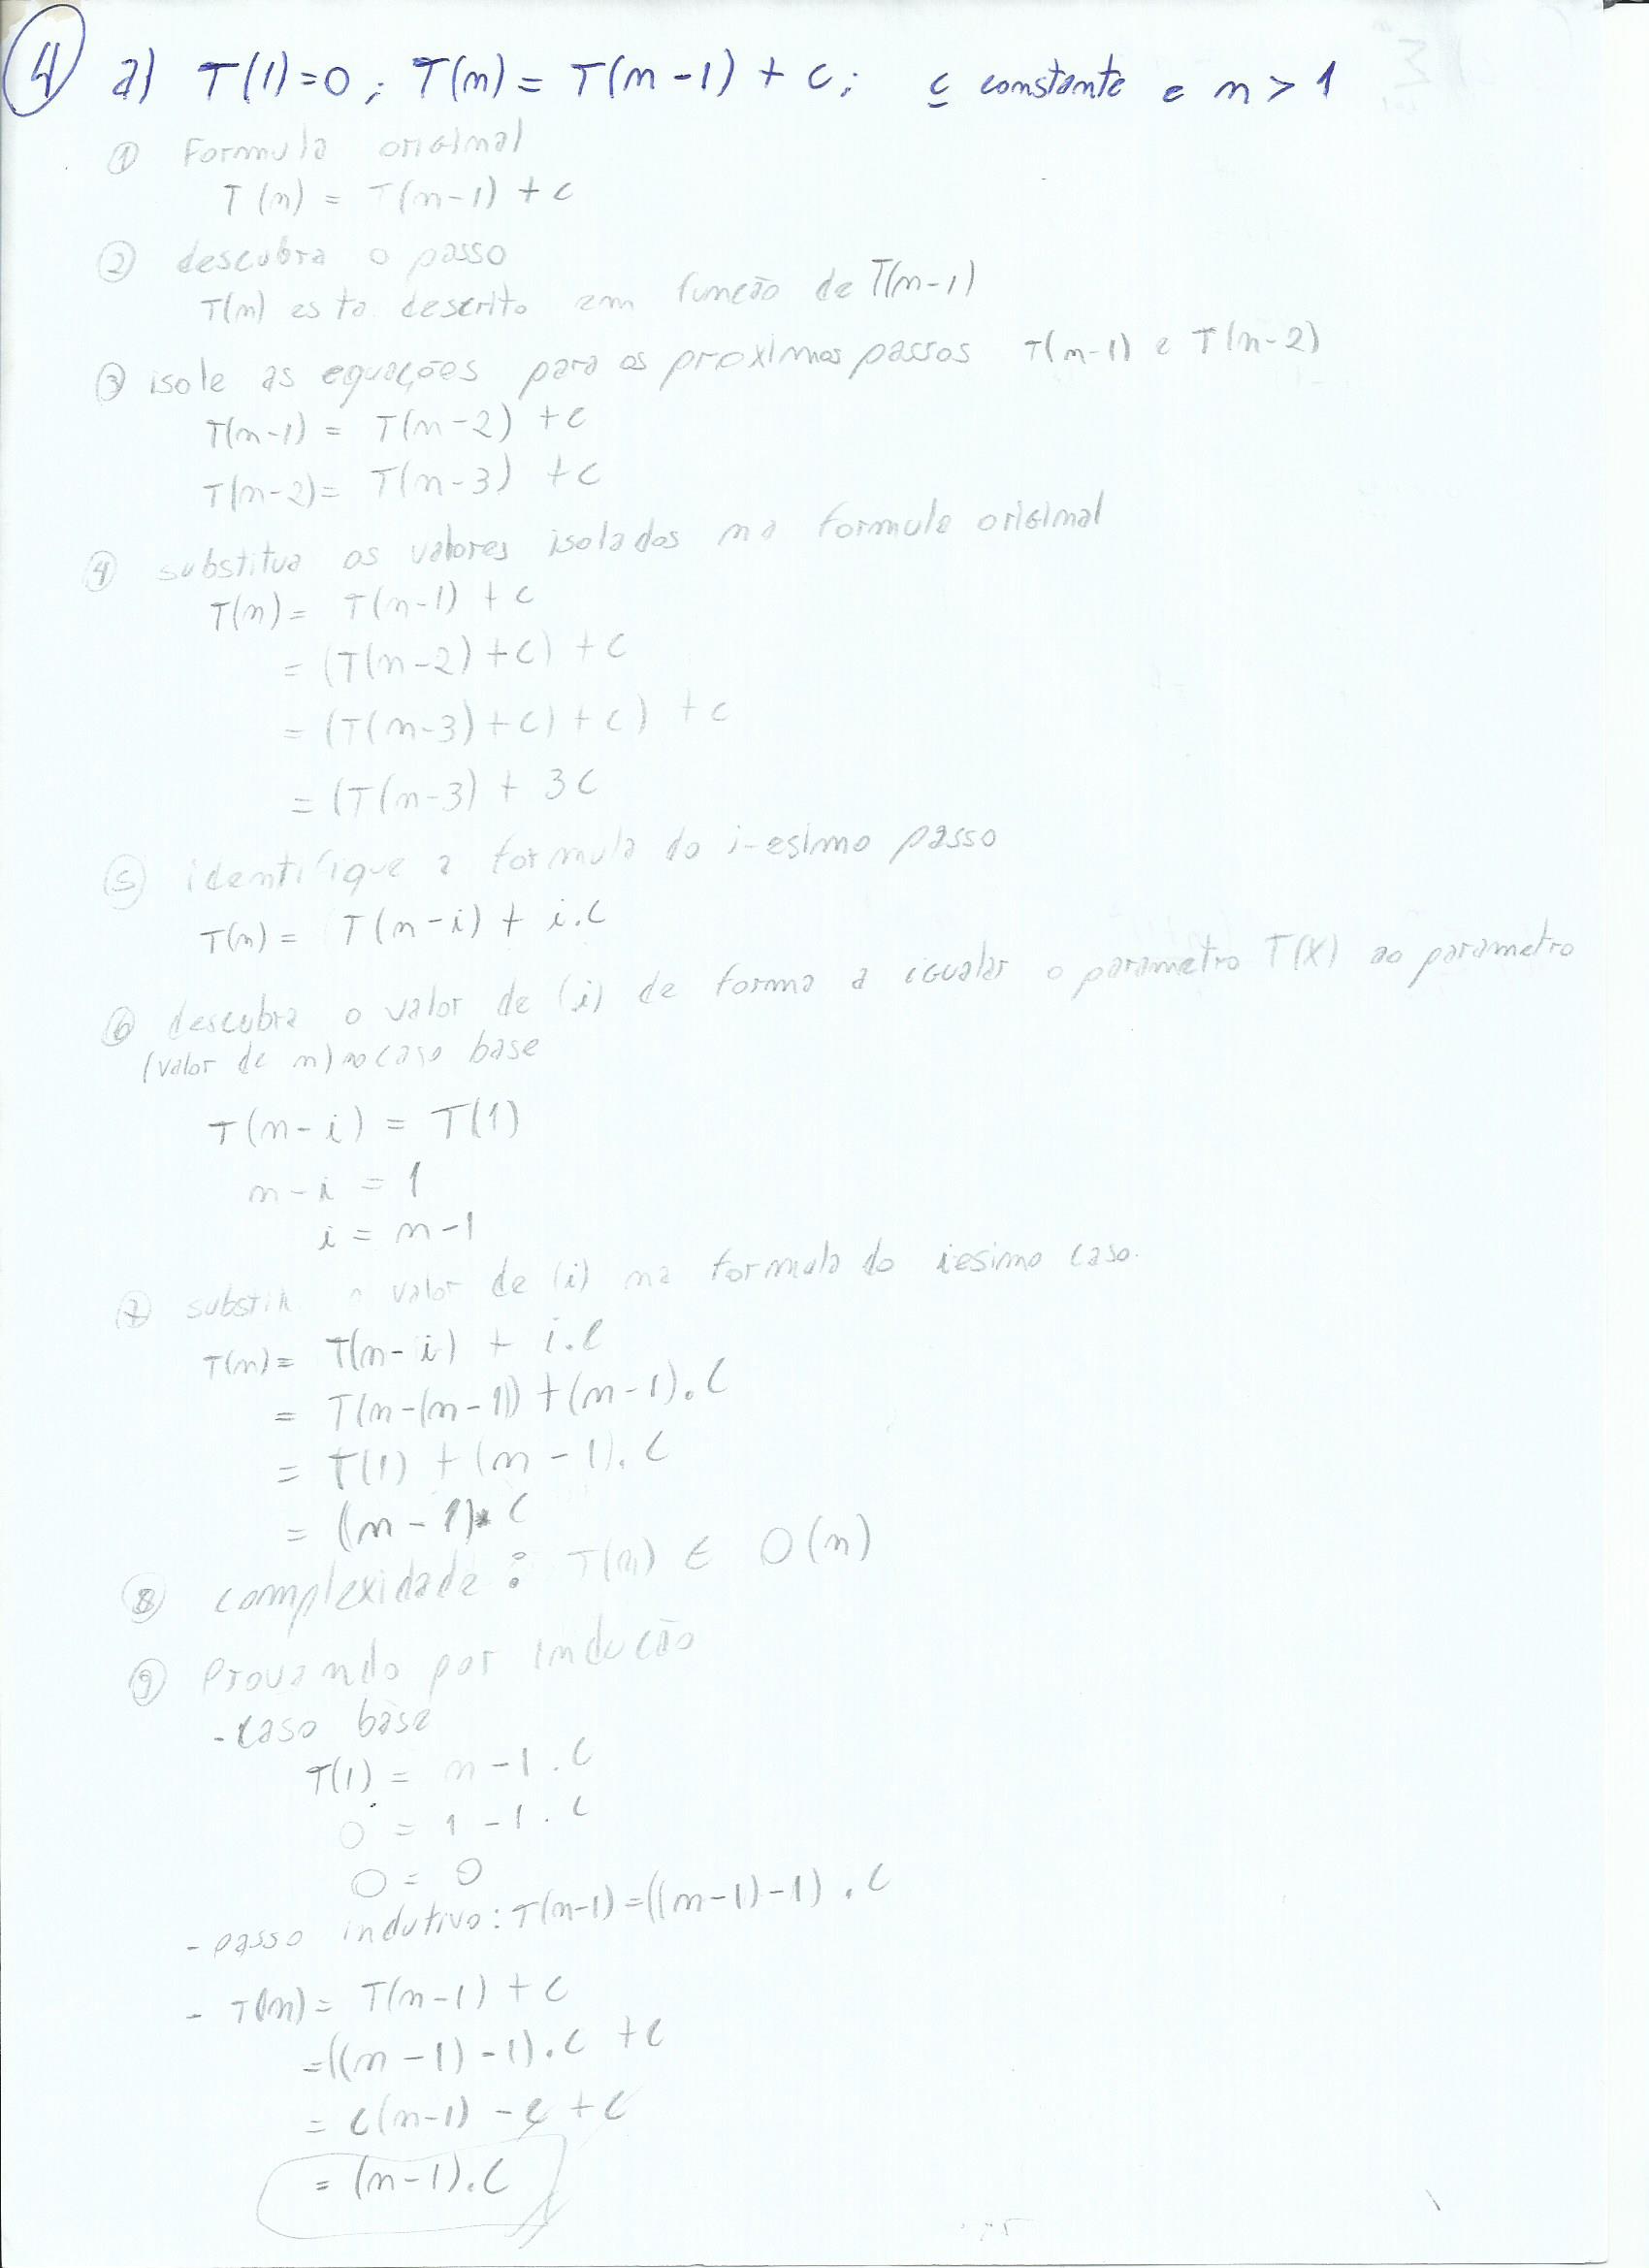 4 a) T(1)=0; T(n)= T(n-1) + c; c constante e n > 1
① Formula original
T(n) = T(n-1) + c
② descubra o passo
T(n) esta descrito em função de T(n-1)
③ isole as equações para os proximos passos T(n-1) e T(n-2)
T(n-1) = T(n-2) + c
T(n-2) = T(n-3) + c
④ substitua os valores isolados na formula original
T(n) = T(n-1) + c
= (T(n-2) + c) + c
= (T(n-3) + c) + c) + c
= (T(n-3) + 3c
⑤ identifique a formula do i-esimo passo
T(n) = T(n-i) + i.c
⑥ descubra o valor de (i) de forma a igualar o parametro T(x) ao parametro
(valor de n) no caso base
T(n-i) = T(1)
n-i = 1
i = n-1
⑦ valor de (i) na formula do iesimo caso.
T(n) = T(n-i) + i.c
= T(n-(n-1)) + (n-1).c
= T(1) + (n-1).c
= (n-1).c
⑧ complexidade: T(n) ∈ O(n)
⑨ Provando por indução
- caso base
T(1) = n-1.c
0 = 1-1.c
0 = 0
- passo indutivo: T(n-1)=((n-1)-1).c
- T(n) = T(n-1) + c
=((n-1)-1).c + c
= c(n-1) - c + c
= (n-1).c